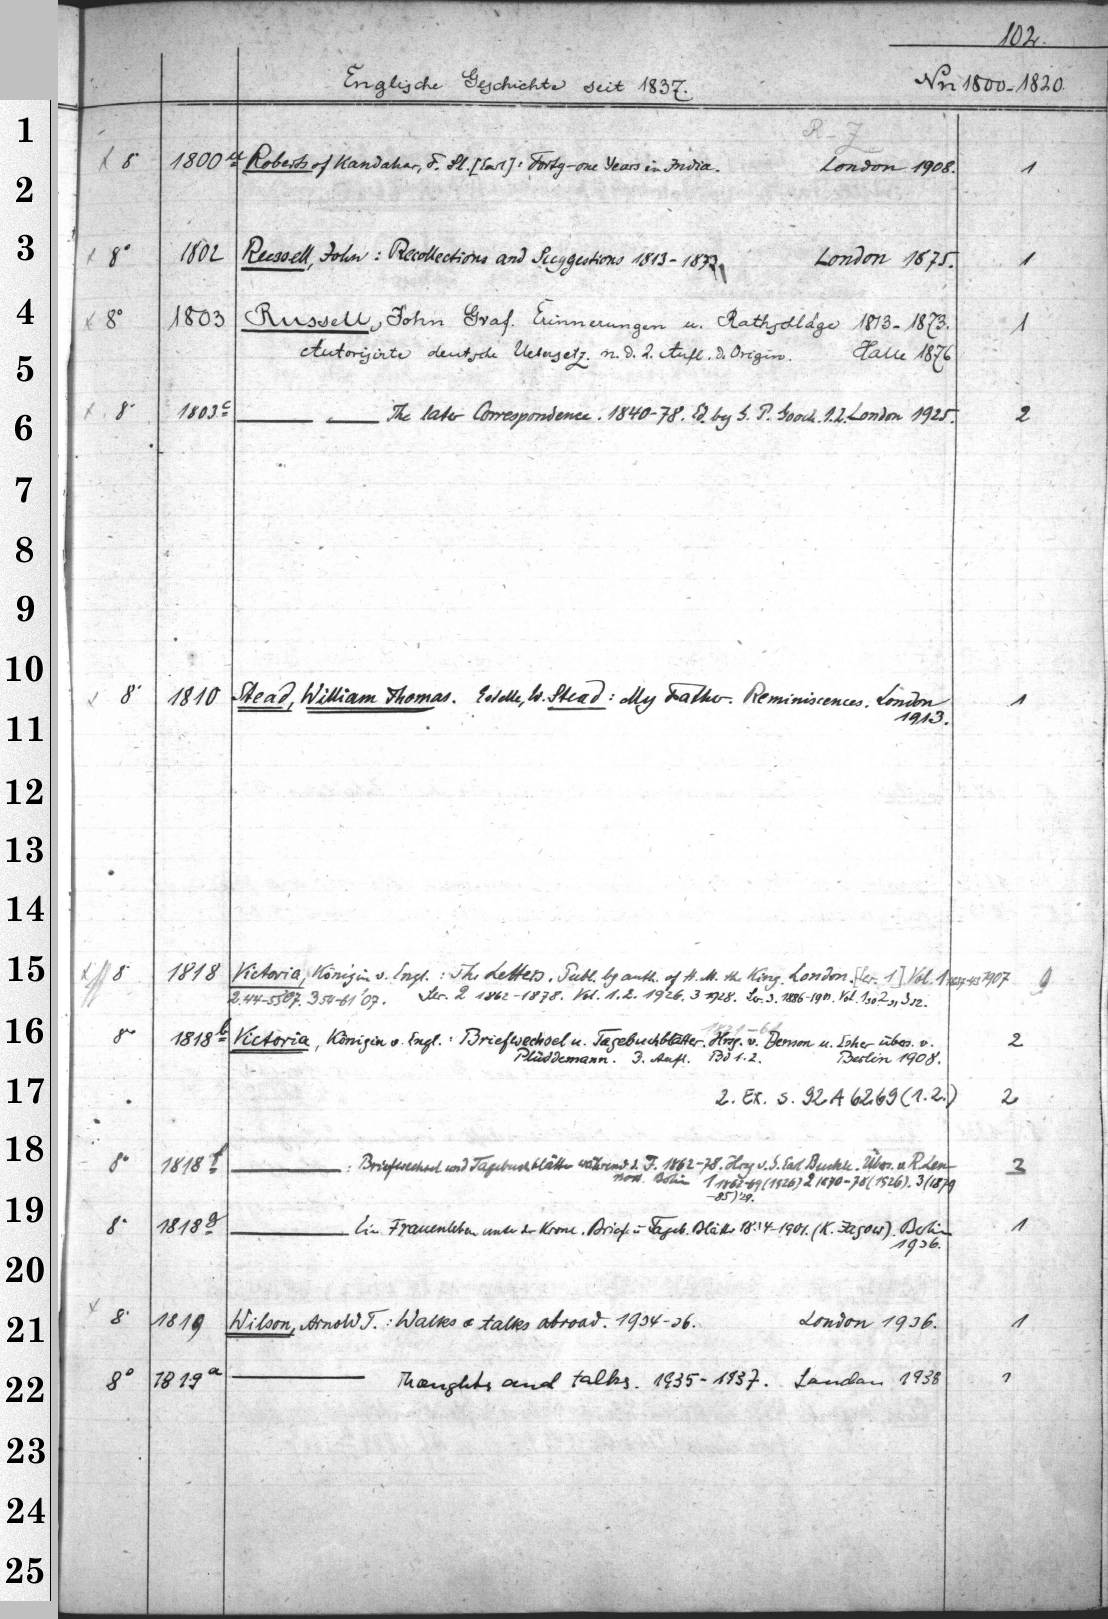 102.
Englische Geschichte seit 1837. Nrn 1800-1820
R-Z
1
x 8° 1800 a Roberts of Kandahar, F. Sl. [Earl]: Forty-one Years in India. London 1908. 1
2
3 x 8° 1802 Russell, John: Recollections and Suggestions 1813-1873. London 1875. 1
4 x 8° 1803 Russell, John Graf. Erinnerungen u. Rathschläge 1813-1873. 1
5 Autorisirte deutsche Uebersetz. n. d. 2. Aufl. d. Origin. Halle 1876
6 x 8° 1803 c The later Correspondence. 1840-78. Ed. by G. P. Gooch. 1.2. London 1925. 2
7
8
9
10 x 8° 1810 Stead, William Thomas. Estelle, W. Stead: My Father. Reminiscences. London 1
11 1913.
12
13
14
15 x 8° 1818 Victoria, Königin v. Engl.: The Letters. Publ. by auth. of H. M. the King. London. [Ser. 1] Vol. 1 1837-43 1907 9
2. 44-53 '07. 3 54-61 '07. Ser. 2 1862-1878. Vol. 1.2. 1926. 3 1928. Ser. 3. 1886-1901. Vol. 1 30 2 31 3 32.
16 8° 1818 b Victoria, Königin v. Engl.: Briefwechsel u. Tagebuchblätter. Hrsg. v. Benson u. Esher übers. v. 2
Plüddemann. 3. Aufl. Bd 1.2. Berlin 1908.
17 2. Ex. s. 92 A 6269 (1.2.) 2
18 8° 1818 f : Briefwechsel und Tagebuchblätter während d. J. 1862-78. Hrsg v. G. Earl Buckle. Übers. v. R. Len- 3
nox. Berlin 1 1862-69 (1926) 2 1870-78 (1926). 3 (1879
-85) 29.
19 8° 1818 g Ein Frauenleben unter der Krone. Briefe u. Tageb. Blätter 1834-1901. (K. Jagow). Berlin 1
1936.
20
21 x 8° 1819 Wilson, Arnold T.: Walks & talks abroad. 1934-36. London 1936. 1
22 8° 1819 a Thoughts and talks. 1935-1937. London 1938 1
23
24
25